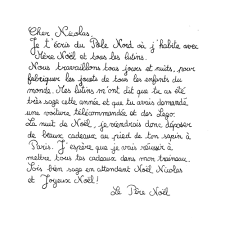 Cher Nicolas,
Je t'écris du Pôle Nord où j'habite avec
Mère Noël et tous les lutins.
Nous travaillons tous jours et nuits, pour
fabriquer les jouets de tous les enfants du
monde. Mes lutins m'ont dit que tu as été
très sage cette année et que tu avais demandé
une voiture télécommandée et des Lego.
La nuit de Noël, je viendrais donc déposer
de beaux cadeaux au pied de ton sapin à
Paris. J'espère que je vais réussir à
mettre tous tes cadeaux dans mon traineau.
Sois bien sage en attendant Noël Nicolas
et Joyeux Noël!
Le Père Noël